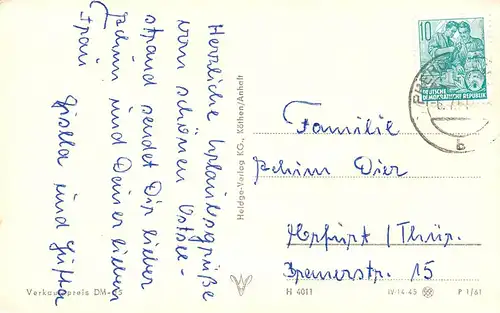 Herzliche Urlaubsgrüße
vom schönen Ostsee-
strand sendet Dir lieber
Achim und Deiner lieben
Frau
Gisela und Jutta
Heldge-Verlag KG., Köthen/Anhalt
10
DEUTSCHE
DEMOKRATISCHE REPUBLIK
b
Familie
Achim Dier
Erfurt /Thür.
Bremerstr. 15
Verkaufspreis DM
H 4011
IV-14-45
P 1/61